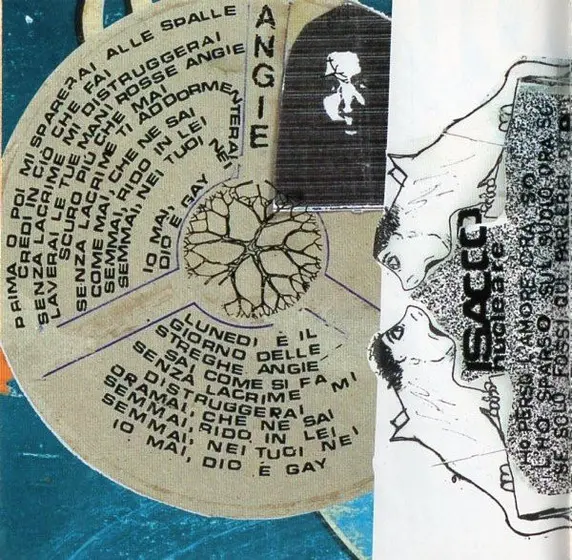 ANGIE
PRIMA O POI MI SPARERAI ALLE SPALLE
CREDI IN CIÒ CHE FAI
SENZA LACRIME MI DISTRUGGERAI
LAVERAI LE TUE MANI ROSSE ANGIE
SCURO PIÙ CHE MAI
SENZA LACRIME TI ADDORMENTERAI
COME MAI, CHE NE SAI
SEMMAI, RIDO IN LEI
SEMMAI, NEI TUOI NEI
IO MAI, DIO È GAY
LUNEDI È IL
GIORNO DELLE
STREGHE ANGIE
SAI COME SI FA
SENZA LACRIME MI
DISTRUGGERAI
ORAMAI, CHE NE SAI
SEMMAI, RIDO IN LEI
SEMMAI, NEI TUOI NEI
IO MAI, DIO È GAY
ISACCO
nucleare
HO PERSO L'AMORE ORA SO
L'HO SPARSO SUL SUOLO ORA SO
SE SOLO FOSSI QUI